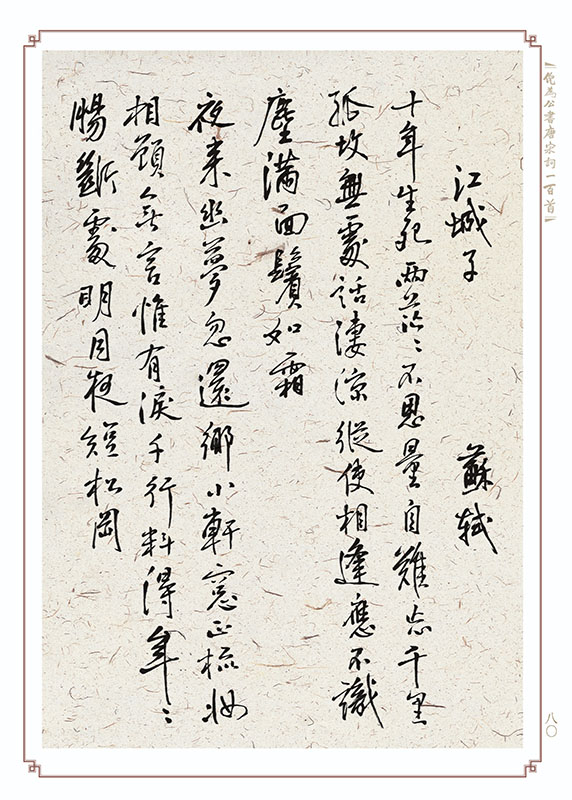 倪為公書唐宋詞一百首
江城子 蘇軾
十年生死兩茫〻不思量自難忘千里
孤坟無處話淒涼縱使相逢應不識
塵滿面鬢如霜
夜来幽夢忽還鄉小軒窓正梳妝
相顧無言惟有淚千行料得年〻
腸斷處明月夜短松岡
八〇